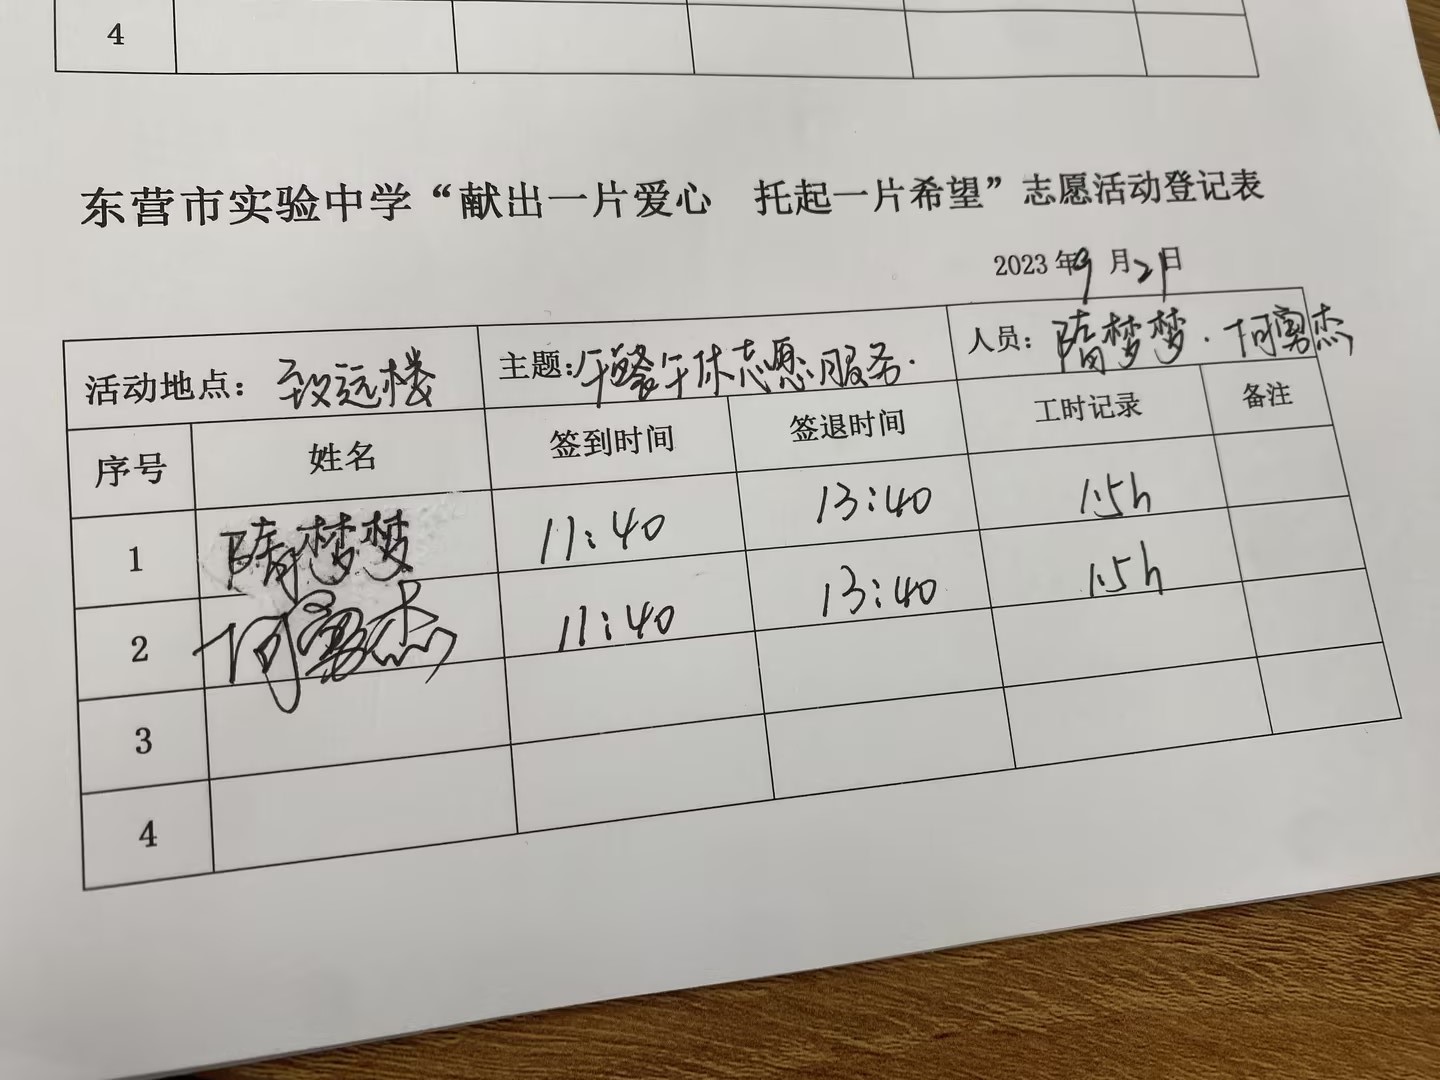 4
东营市实验中学“献出一片爱心 托起一片希望”志愿活动登记表
2023年9月21日
活动地点：致远楼 主题：午餐午休志愿服务. 人员：隋梦梦. 何勇杰
序号 姓名 签到时间 签退时间 工时记录 备注
1 隋梦梦 11:40 13:40 1.5h
2 何勇杰 11:40 13:40 1.5h
3
4